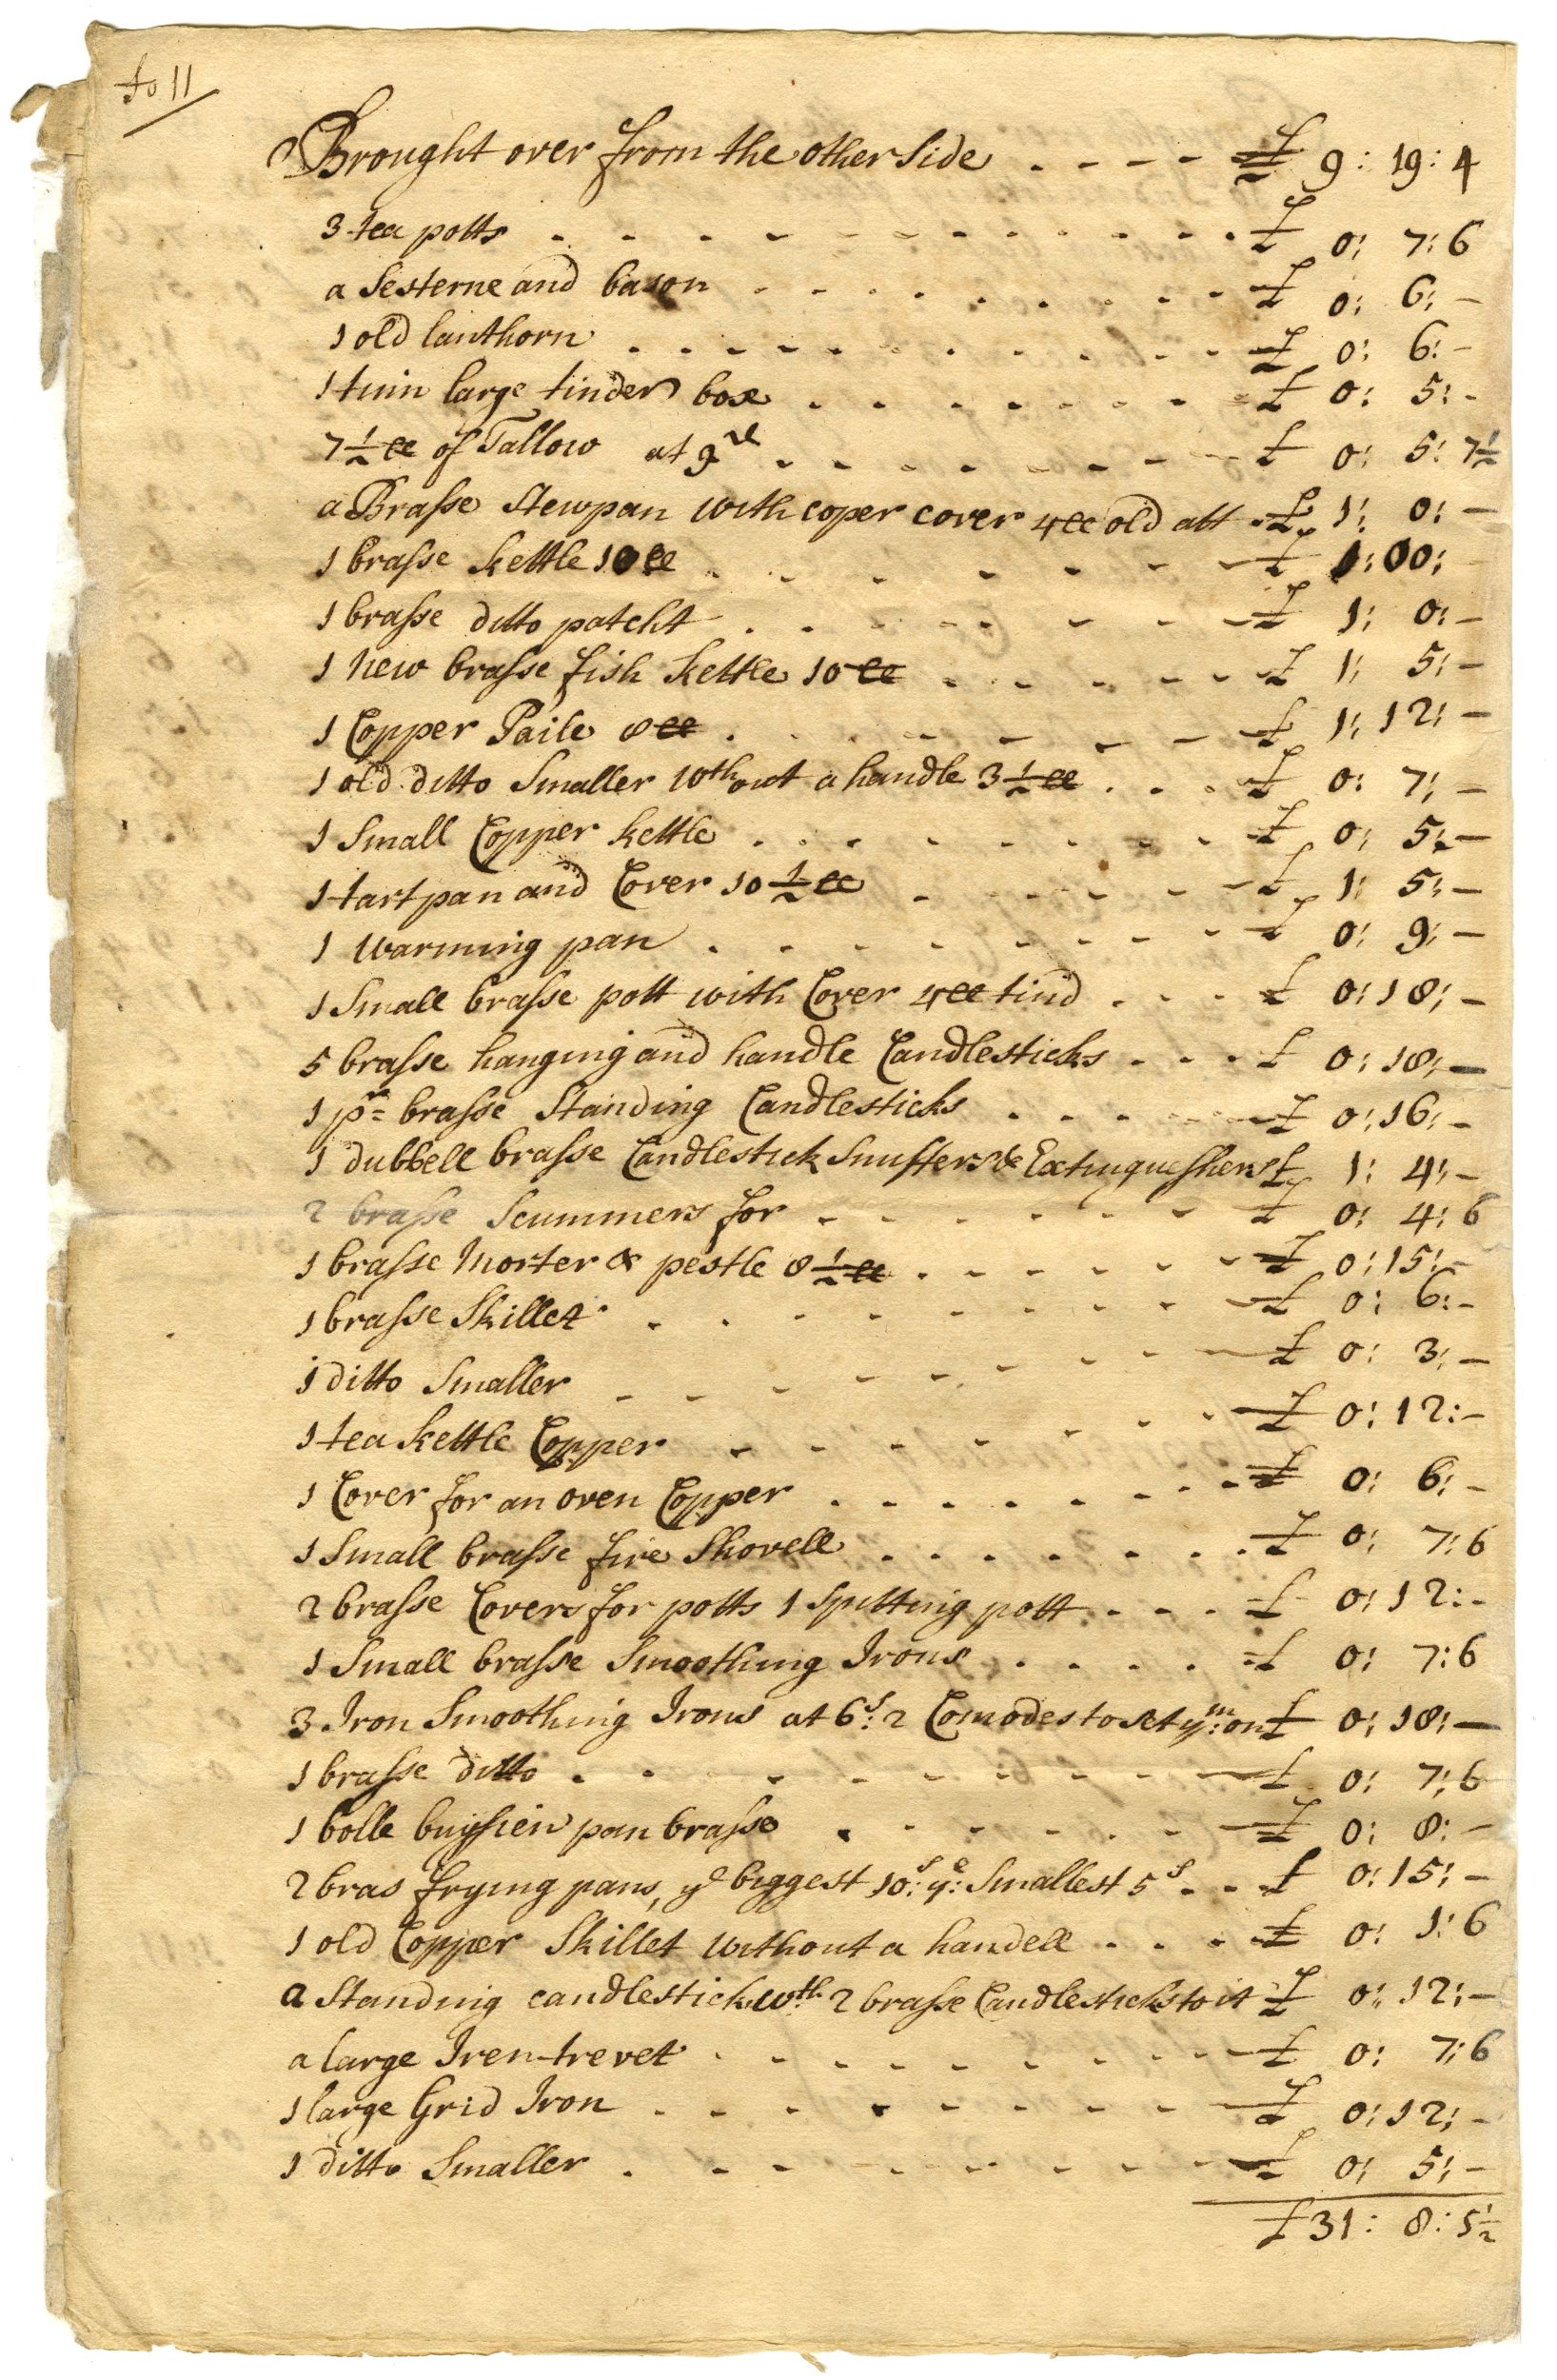 fo 11
Brought over from the other Side - - - - £ 9: 19: 4
3 tea potts - - - - £ 0: 7: 6
a Sesterne and bason - - - - £ 0: 6: -
1 old lanthorn - - - - £ 0: 6: -
1 tinn large tinder box - - - - £ 0: 5: -
7½ ℔ of Tallow at 9d - - - - £ 0: 5: 7½
a Brasse Stewpan with coper cover 4 ℔ old att - £ 1: 0: -
1 brasse kettle 10 ℔ - - - - £ 1: 00: -
1 brasse ditto patcht - - - - £ 1: 0: -
1 new brasse fish kettle 10 ℔ - - - - £ 1: 5: -
1 Copper Paile 8 ℔ - - - - £ 1: 12: -
1 old ditto Smaller wthout a handle 3½ ℔ - - - £ 0: 7: -
1 Small Copper kettle - - - - £ 0: 5: -
1 tart pan and Cover 10½ ℔ - - - - £ 1: 5: -
1 warming pan - - - - £ 0: 9: -
1 Small brasse pott with Cover 4 ℔ tind - - - £ 0: 18: -
5 brasse hanging and handle Candlesticks - - - £ 0: 18: -
1 pr= brasse Standing Candlesticks - - - - £ 0: 16: -
1 dubbell brasse Candlestick Snuffers & Extinqueshers £ 1: 4: -
2 brasse Scummers for - - - - £ 0: 4: 6
1 brasse Morter & pestle 8½ ℔ - - - - £ 0: 15: -
1 brasse Skillet - - - - £ 0: 6: -
1 ditto Smaller - - - - £ 0: 3: -
1 tea kettle Copper - - - - £ 0: 12: -
1 Cover for an oven Copper - - - - £ 0: 6: -
1 Small brasse fire Shovell - - - - £ 0: 7: 6
2 brasse Covers for potts 1 Spitting pott - - - £ 0: 12: -
1 Small brasse Smoothing Irons - - - - £ 0: 7: 6
3 Iron Smoothing Irons at 6s: 2 Comodes to set ym: on £ 0: 18: -
1 brasse ditto - - - - £ 0: 7: 6
1 bolle buysien pan brasse - - - - £ 0: 8: -
2 bras frying pans, ye biggest 10s: ye: Smallest 5s - - £ 0: 15: -
1 old Copper Skillet without a handell - - - £ 0: 1: 6
a Standing candlestick wth 2 brasse Candlesticks to it £ 0: 12: -
a large Iren trevet - - - - £ 0: 7: 6
1 large Grid Iron - - - - £ 0: 12: -
1 ditto Smaller - - - - £ 0: 5: -
£ 31: 8: 5½